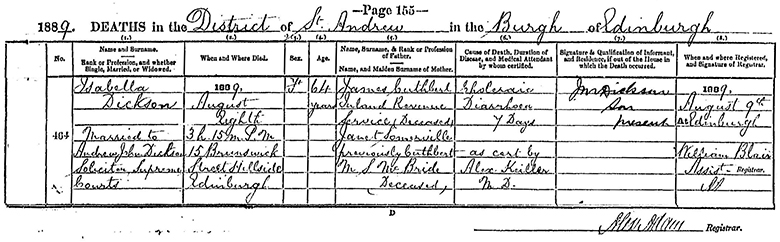 —Page 155—
1889. DEATHS in the District of St. Andrew in the Burgh of Edinburgh
(1.) (2.) (3.) (4.) (5.) (6.) (7.) (8.)
No.
Name and Surname.
Rank or Profession, and whether
Single, Married, or Widowed.
When and Where Died.
Sex.
Age.
Name, Surname, & Rank or Profession
of Father.
Name, and Maiden Surname of Mother.
Cause of Death, Duration of
Disease, and Medical Attendant
by whom certified.
Signature & Qualification of Informant,
and Residence, if out of the House in
which the Death occurred.
When and where Registered,
and Signature of Registrar.
464
Isabella
Dickson
Married to
Andrew John Dickson
Solicitor Supreme
Courts
1889.
August
Eighth
3 h. 15 m. P.M.
15 Brunswick
Street Hillside
Edinburgh
F
64
years
James Cuthbert
Inland Revenue
Service (Deceased)
Janet Somerville
previously Cuthbert
M. S. McBride
(Deceased)
Choleraic
Diarrhoea
7 Days
as cert by
Alex. Keiller
M. D.
Dickson
Son
present
1889.
August 9th
At Edinburgh
William Blair
Assist- Registrar.
D
Registrar.